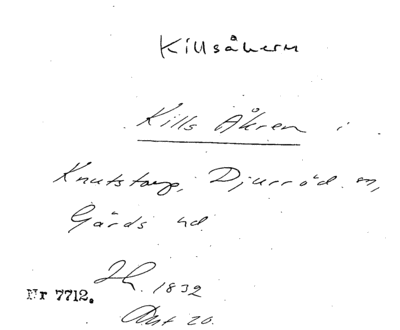 Killsåkern
Kills Åkren i
Knutstorp, Djurröd sn,
Gärds hd.
Nr 7712. 1832
Akt 20.